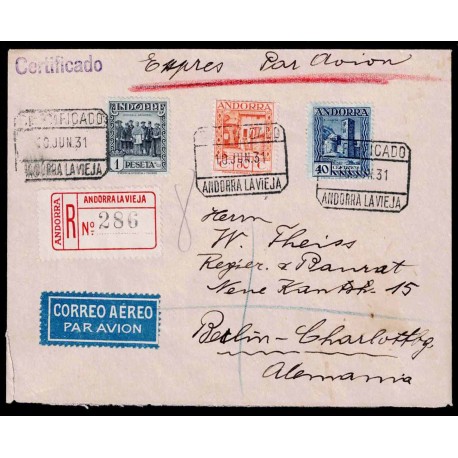 Certificado
Expres Par Avion
ANDORRA
1 PESETA
ANDORRA
ANDORRA
40
CERTIFICADO
10.JUN.31
ANDORRA LA VIEJA
10.JUN.31
ANDORRA LA VIEJA
10.JUN.31
ANDORRA LA VIEJA
ANDORRA
R
ANDORRA LA VIEJA
Nº 286
CORREO AÉREO
PAR AVION
Herrn
W. Theiss
Regier. & Baurat
Neue Kantstr. 15
Berlin-Charlottbg
Alemania